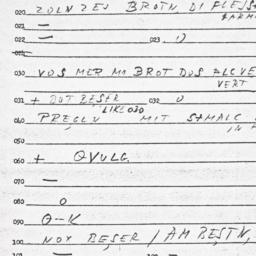 020 ZOLNZEN BROTN, DI FLEJS
021 —
022 — 023. 0
024
030 VOS MER MO BROT DOS FLEYE
VERT
031 + DOT BEŞER 032 0
LIKE 030
040 PREGLN MIT SMALC
050
060 + QVULG.
070 —
080 0
090 0-K
100 NOX BEŞER / AM BESTN,